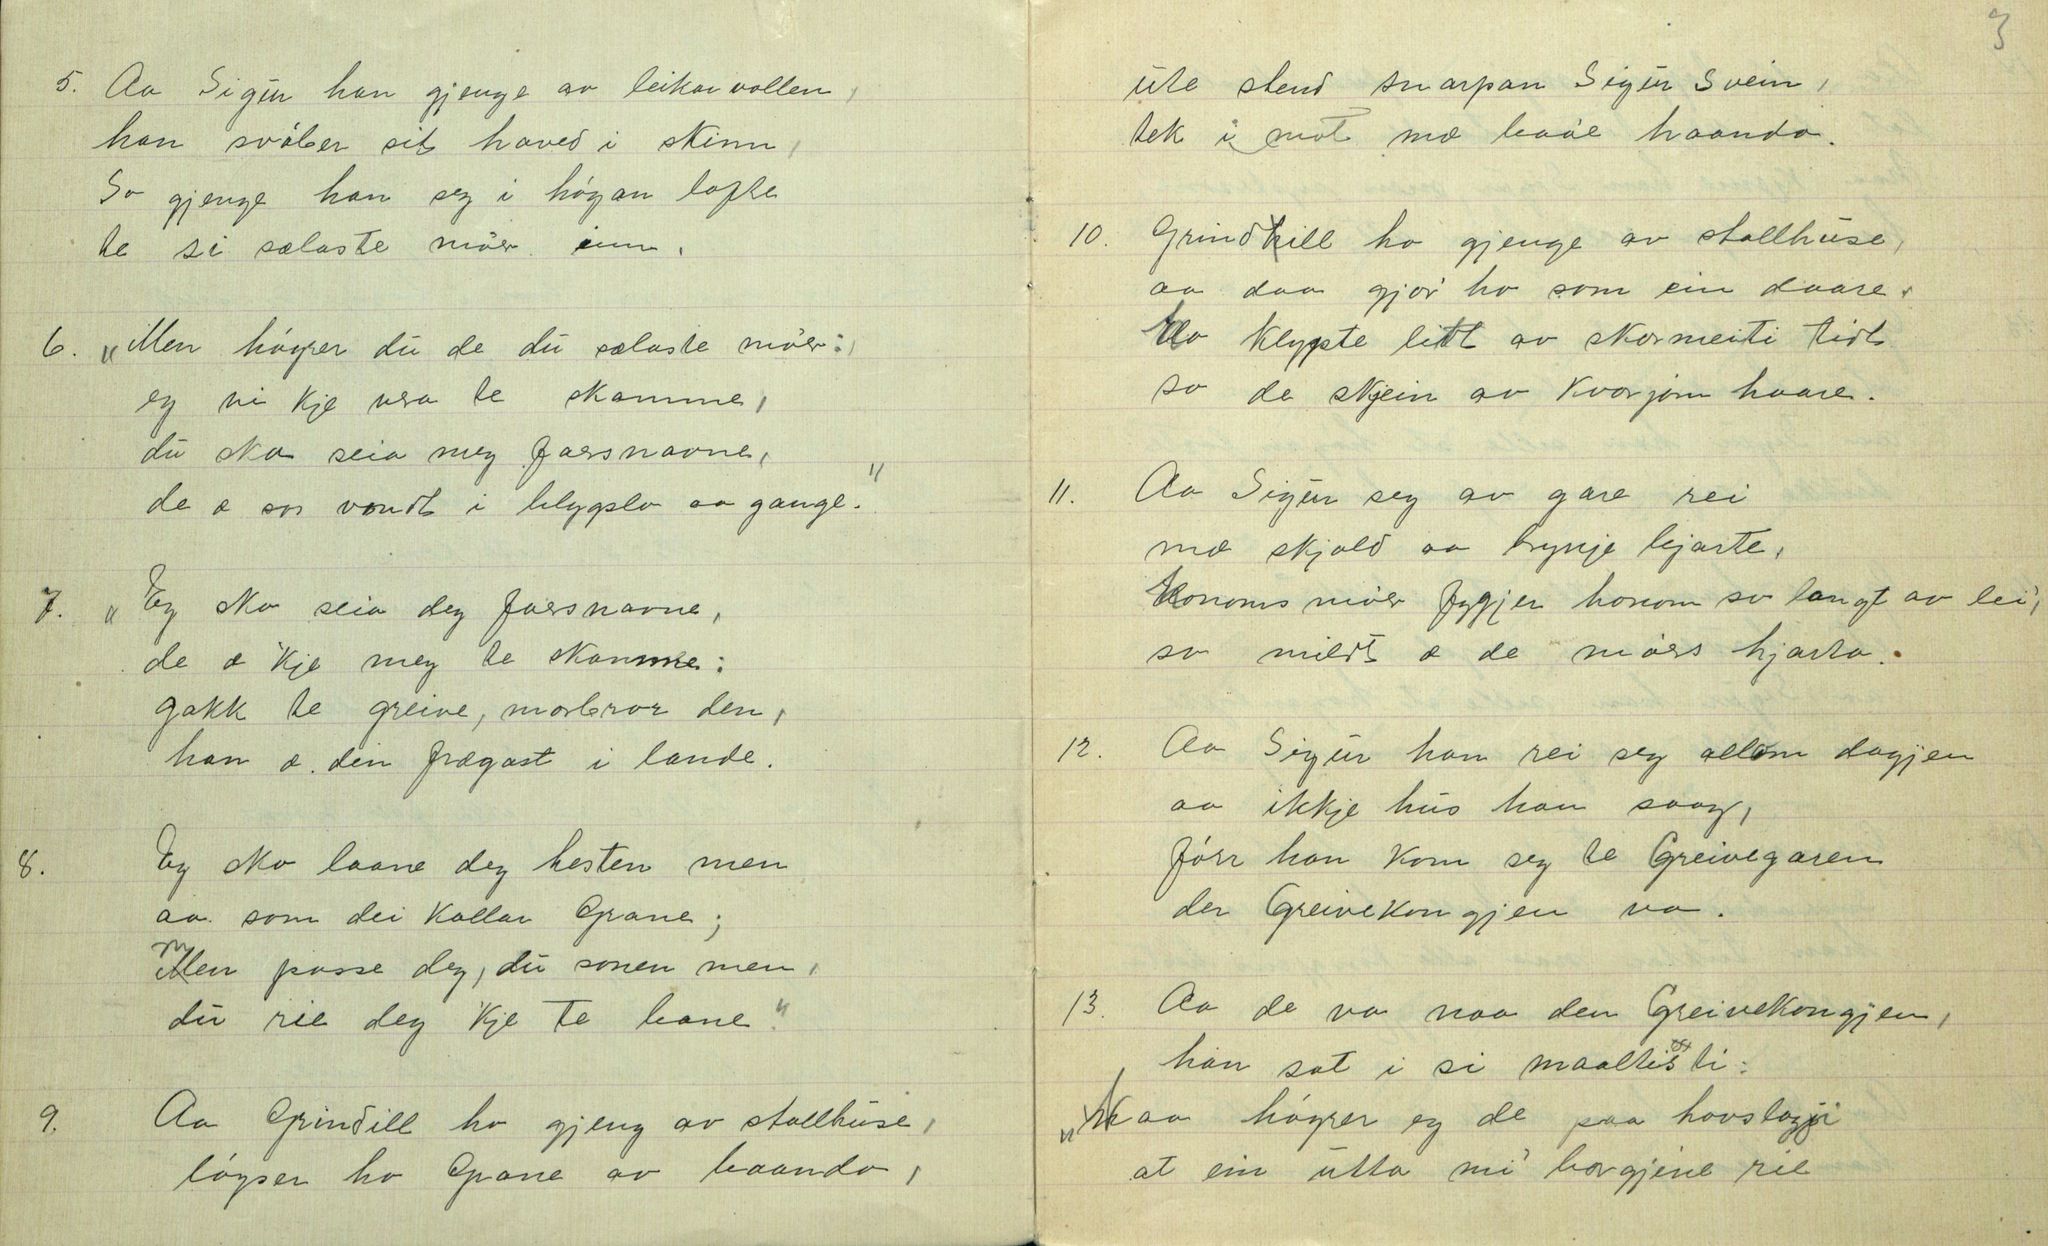 5. Aa Sigúr han gjenge av leikarvollen,
han svóber sit haved i skinn,
So gjenge han seg i hógan lofte
te si sælaste móer inn.
6. "Men hóyrer dú de dú sælaste móer:,
eg vi kje vera te skamme,
dú ska seia meg faersnavne,
de æ so vondt i blygsla aa gange."
7. "Eg ska seia deg faersnavne,
de æ 'kje meg te skamme:
gakk te greive, morbror den,
han æ den frægast i lande.
8. Eg ska laane deg hesten men
aa som dei kallar Grane;
Men passe deg, dú sonen men,
dú rie deg kje te bane."
9. Aa Grindill ho gjeng av stallhúse,
lóyser ho Grane av baando,
3
úte stend snarpan Sigúr Svein,
tek i mot mæ baae haando.
10. Grindill ho gjenge av stallhúse,
aa daa gjor' ho som ein daare.
Ho klypte litt av skormeiti tidt
so de skjein av kvorjom haare.
11. Aa Sigúr seg av gare rei
mæ skjold aa brynje bjarte,
Honoms móer fygjer honom so langt av lei',
so mildt æ de móers hjarta.
12. Aa Sigúr han rei seg allom dagjen
aa ikkje hús han saag,
fórr han kom seg te Greivegaren
der Greivekongjen va.
13. Aa de va naa den Greivekongjen,
han sat i si maaltisti:
"Kaa hóyrer eg de paa hovslagji
at ein útta mi' borgjene rie